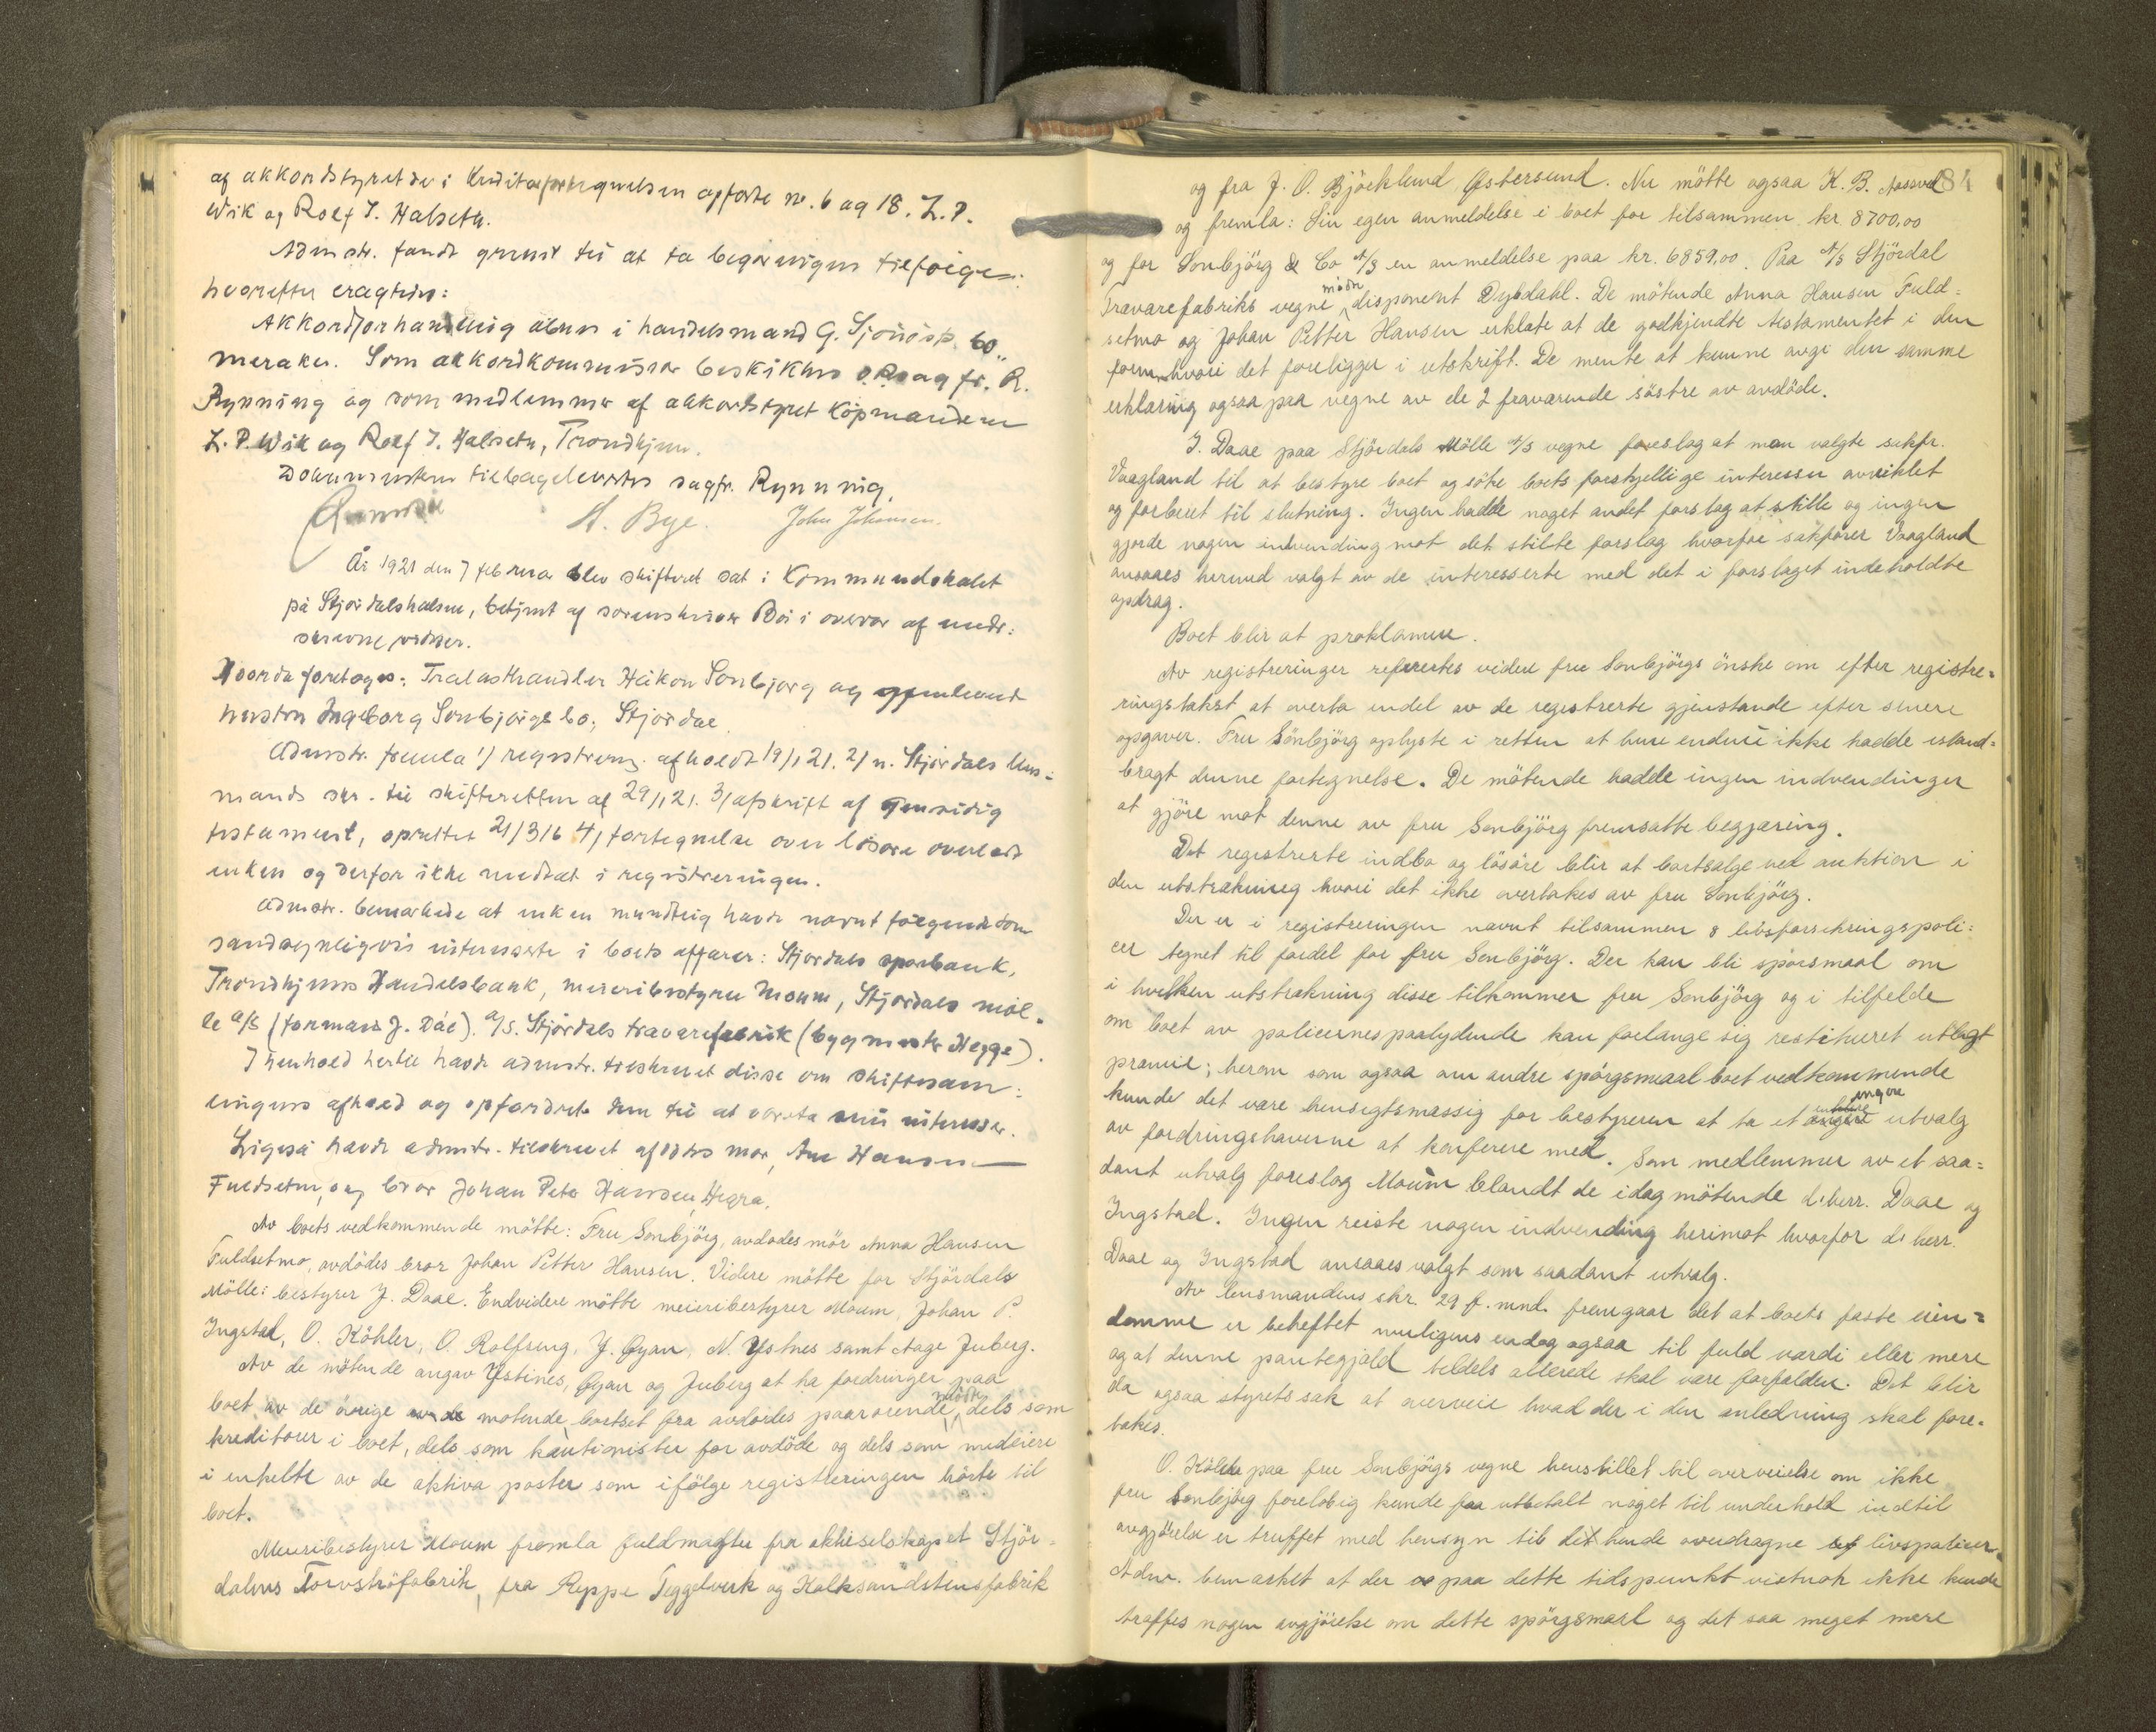 af akkordstyret de i kreditorfortegnelsen opførte nr. 6 og 18. L. P.
Wik og Rolf J. Halseth.
Admstr. fandt grund til at ta begjæringen tilfølge
hvorefter eragtedes:
Akkordforhandling åbnes i handelsmand G. Sjöüists bo
meraker. Som akkordkommissær beskikkes O.R. sagfr. R.
Rynning og som medlemmer af akkordstyret Köpmændene
L. P. Wik og Rolf J. Halseth, Trondhjem.
Dokumenterne tilbagelevertes sagfr. Rynning.
H. Bye. John Johansen.
År 1921 den 7 februar blev skifteret sat i Kommunelokalet
på Stjørdalshalsen, betjent af sorenskriver Bøi i overvær af under:
skrevne vidner.
Hvorda foretoges: Trælasthandler Håkon Sonbjørg og gjenlevende
hustru Ingeborg Sonbjørgs bo, Stjørdal
Admstr. fremla 1/ registrering afholdt 19/1 21. 2/ n. Stjørdals lens=
mands skr. til skifteretten af 29/1 21. 3/ afskrift af gensidig
testament, oprettet 21/3 16 4/ fortegnelse over løsøre overladt
enken og derfor ikke medtat i registreringen.
Admstr. bemærkede at enken mundtlig havde nævnt følgende som
sandsynligvis interesserte i boets affærer: Stjørdals sparebank,
Trondhjems Handelsbank, meieribestyrer Moum, Stjørdals møl=
le a/s (formand J. Dåe). a/s. Stjørdals trævarefabrik (bygmester Hegge).
I henhold hertil havde admstr. tilskrevet disse om skiftesam=
lingens afhold og opfordret dem til at vareta sine interesser.
Ligeså havde admstr. tilskrevet afdødes mor, Ane Hansen
Fuldsetmo, og bror Johan Peter Hansen, Hegra.
Av boets vedkommende mötte: Fru Sonbjörg, avdödes mor Anna Hansen
Fuldsetmo, avdödes bror Johan Petter Hansen. Videre mötte for Stjördals
Mölle: bestyrer J. Daae. Endvidere mötte meieribestyrer Moum, Johan P.
Ingstad, O. Köhler, O. Rolfseng, J. Öyan, N. Ystnes samt Aage Juberg.
Av de mötende angav Ystines, Öyan og Juberg at ha fordringer paa
boet av de övrige av de mötende bortset fra avdödes paarörende mötte dels som
kreditorer i boet, dels som kautionister for avdöde og dels som medeiere
i enkelte av de aktiva poster som ifölge registreringen hörte til
boet.
Meieribestyrer Moum fremla fuldmagter fra aktieselskapet Stjör=
dalens Torvströfabrik, fra Reppe Teggelverk og Kalksandstensfabrik
84
og fra J. O. Björklund Östersund. Nu mötte ogsaa K. B. Aassved
og fremla: Sin egen anmeldelse i boet for tilsammen kr. 8700,00
og for Sonbjörg & Co A/S en anmeldelse paa kr. 6859,00. Paa A/S Stjördal
Trævarefabriks vegne mötte disponent Dybdahl. De mötende Anna Hansen Fuld=
setmo og Johan Petter Hansen erklærte at de godkjendte testamentet i den
form hvori det foreligger i utskrift. De mente at kunne avgi den samme
erklæring ogsaa paa vegne av de 2 fraværende söstre av avdöde.
J. Daae paa Stjördals Mölle A/S vegne foreslog at man valgte sakfr.
Vaagland til at bestyre boet og söke boets forskjellige interesser avviklet
og forberet til slutning. Ingen hadde noget andet forslag at stille og ingen
gjorde nogen indvending mot det stilte forslag hvorfor sakförer Vaagland
ansaaes hermed valgt av de interesserte med det i forslaget indeholdte
opdrag.
Boet blir at proklamere.
Av registreringer referertes videre fru Sonbjörgs önske om efter registre=
ringstakst at overta endel av de registrerte gjenstande efter senere
opgaver. Fru Sönbjörg oplyste i retten at hun endnu ikke hadde istand=
bragt denne fortegnelse. De mötende hadde ingen indvendinger
at gjöre mot denne av fru Sonbjörg fremsatte begjæring.
Det registrerte indbo og lösöre blir at bortsælge ved auktion i
den utstrækning hvori det ikke overtakes av fru Sonbjörg.
Der er i registreringen nævnt tilsammen 8 livsforsikringspoli=
cer tegnet til fordel for fru Sonbjörg. Der kan bli spörsmaal om
i hvilken utstrækning disse tilkommer fru Sonbjörg og i tilfelde
om boet av policernes paalydende kan forlange sig restitueret utlagt
præmie; herom som ogsaa om andre spörgsmaal boet vedkommende
kunde det være hensigtsmæssig for bestyreren at ta et engere utvalg
av fordringshaverne at konferere med. Som medlemmer av et saa=
dant utvalg foreslog Moum blandt de idag mötende d'herr. Daae og
Ingstad. Ingen reiste nogen indvending herimot hvorfor d' herr.
Daae og Ingstad ansaaes valgt som saadant utvalg.
Av lensmandens skr. 29 f. mnd. fremgaar det at boets faste eien=
domme er beheftet muligens endog ogsaa til fuld værdi eller mere
og at denne pantegjæld tildels allerede skal være forfalden. Det blir
da ogsaa styrets sak at overveie hvad der i den anledning skal fore=
takes.
O. Köhler paa fru Sonbjörgs vegne henstillet til overveielse om ikke
fru Sonbjörg forelöbig kunde faa utbetalt noget til underhold indtil
avgjörelse er truffet med hensyn til det hende overdragne livspolicer.
Adm. bemærket at der paa dette tidspunkt vistnok ikke kunde
træffes nogen avgjörelse om dette spörgsmaal og det saa meget mere